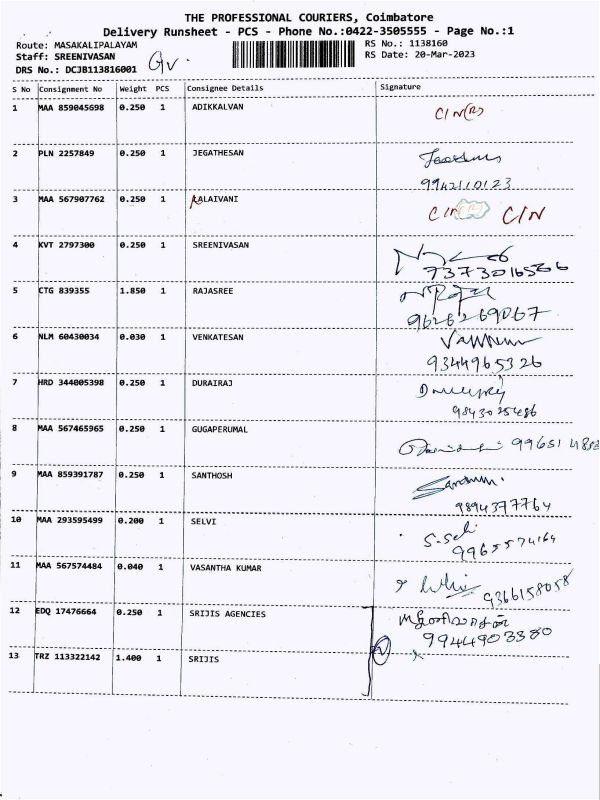 THE PROFESSIONAL COURIERS, Coimbatore
Delivery Runsheet - PCS - Phone No.:0422-3505555 - Page No.:1
Route: MASAKALIPALAYAM RS No.: 1138160
Staff: SREENIVASAN RS Date: 20-Mar-2023
DRS No.: DCJB113816001
S No Consignment No Weight PCS Consignee Details Signature
1 MAA 859045698 0.250 1 ADIKKALVAN C/N(R)
2 PLN 2257849 0.250 1 JEGATHESAN
9942110123
3 MAA 567907762 0.250 1 KALAIVANI C/N C/N
4 KVT 2797300 0.250 1 SREENIVASAN
5 CTG 839355 1.850 1 RAJASREE
9626269067
6 NLM 60430034 0.030 1 VENKATESAN
9344965326
7 HRD 344005398 0.250 1 DURAIRAJ
9843025486
8 MAA 567465965 0.250 1 GUGAPERUMAL
9 MAA 859391787 0.250 1 SANTHOSH
9894377764
10 MAA 293595499 0.200 1 SELVI
9965574164
11 MAA 567574484 0.040 1 VASANTHA KUMAR 9366158058
12 EDQ 17476664 0.250 1 SRIJIS AGENCIES
9944903380
13 TRZ 113322142 1.400 1 SRIJIS